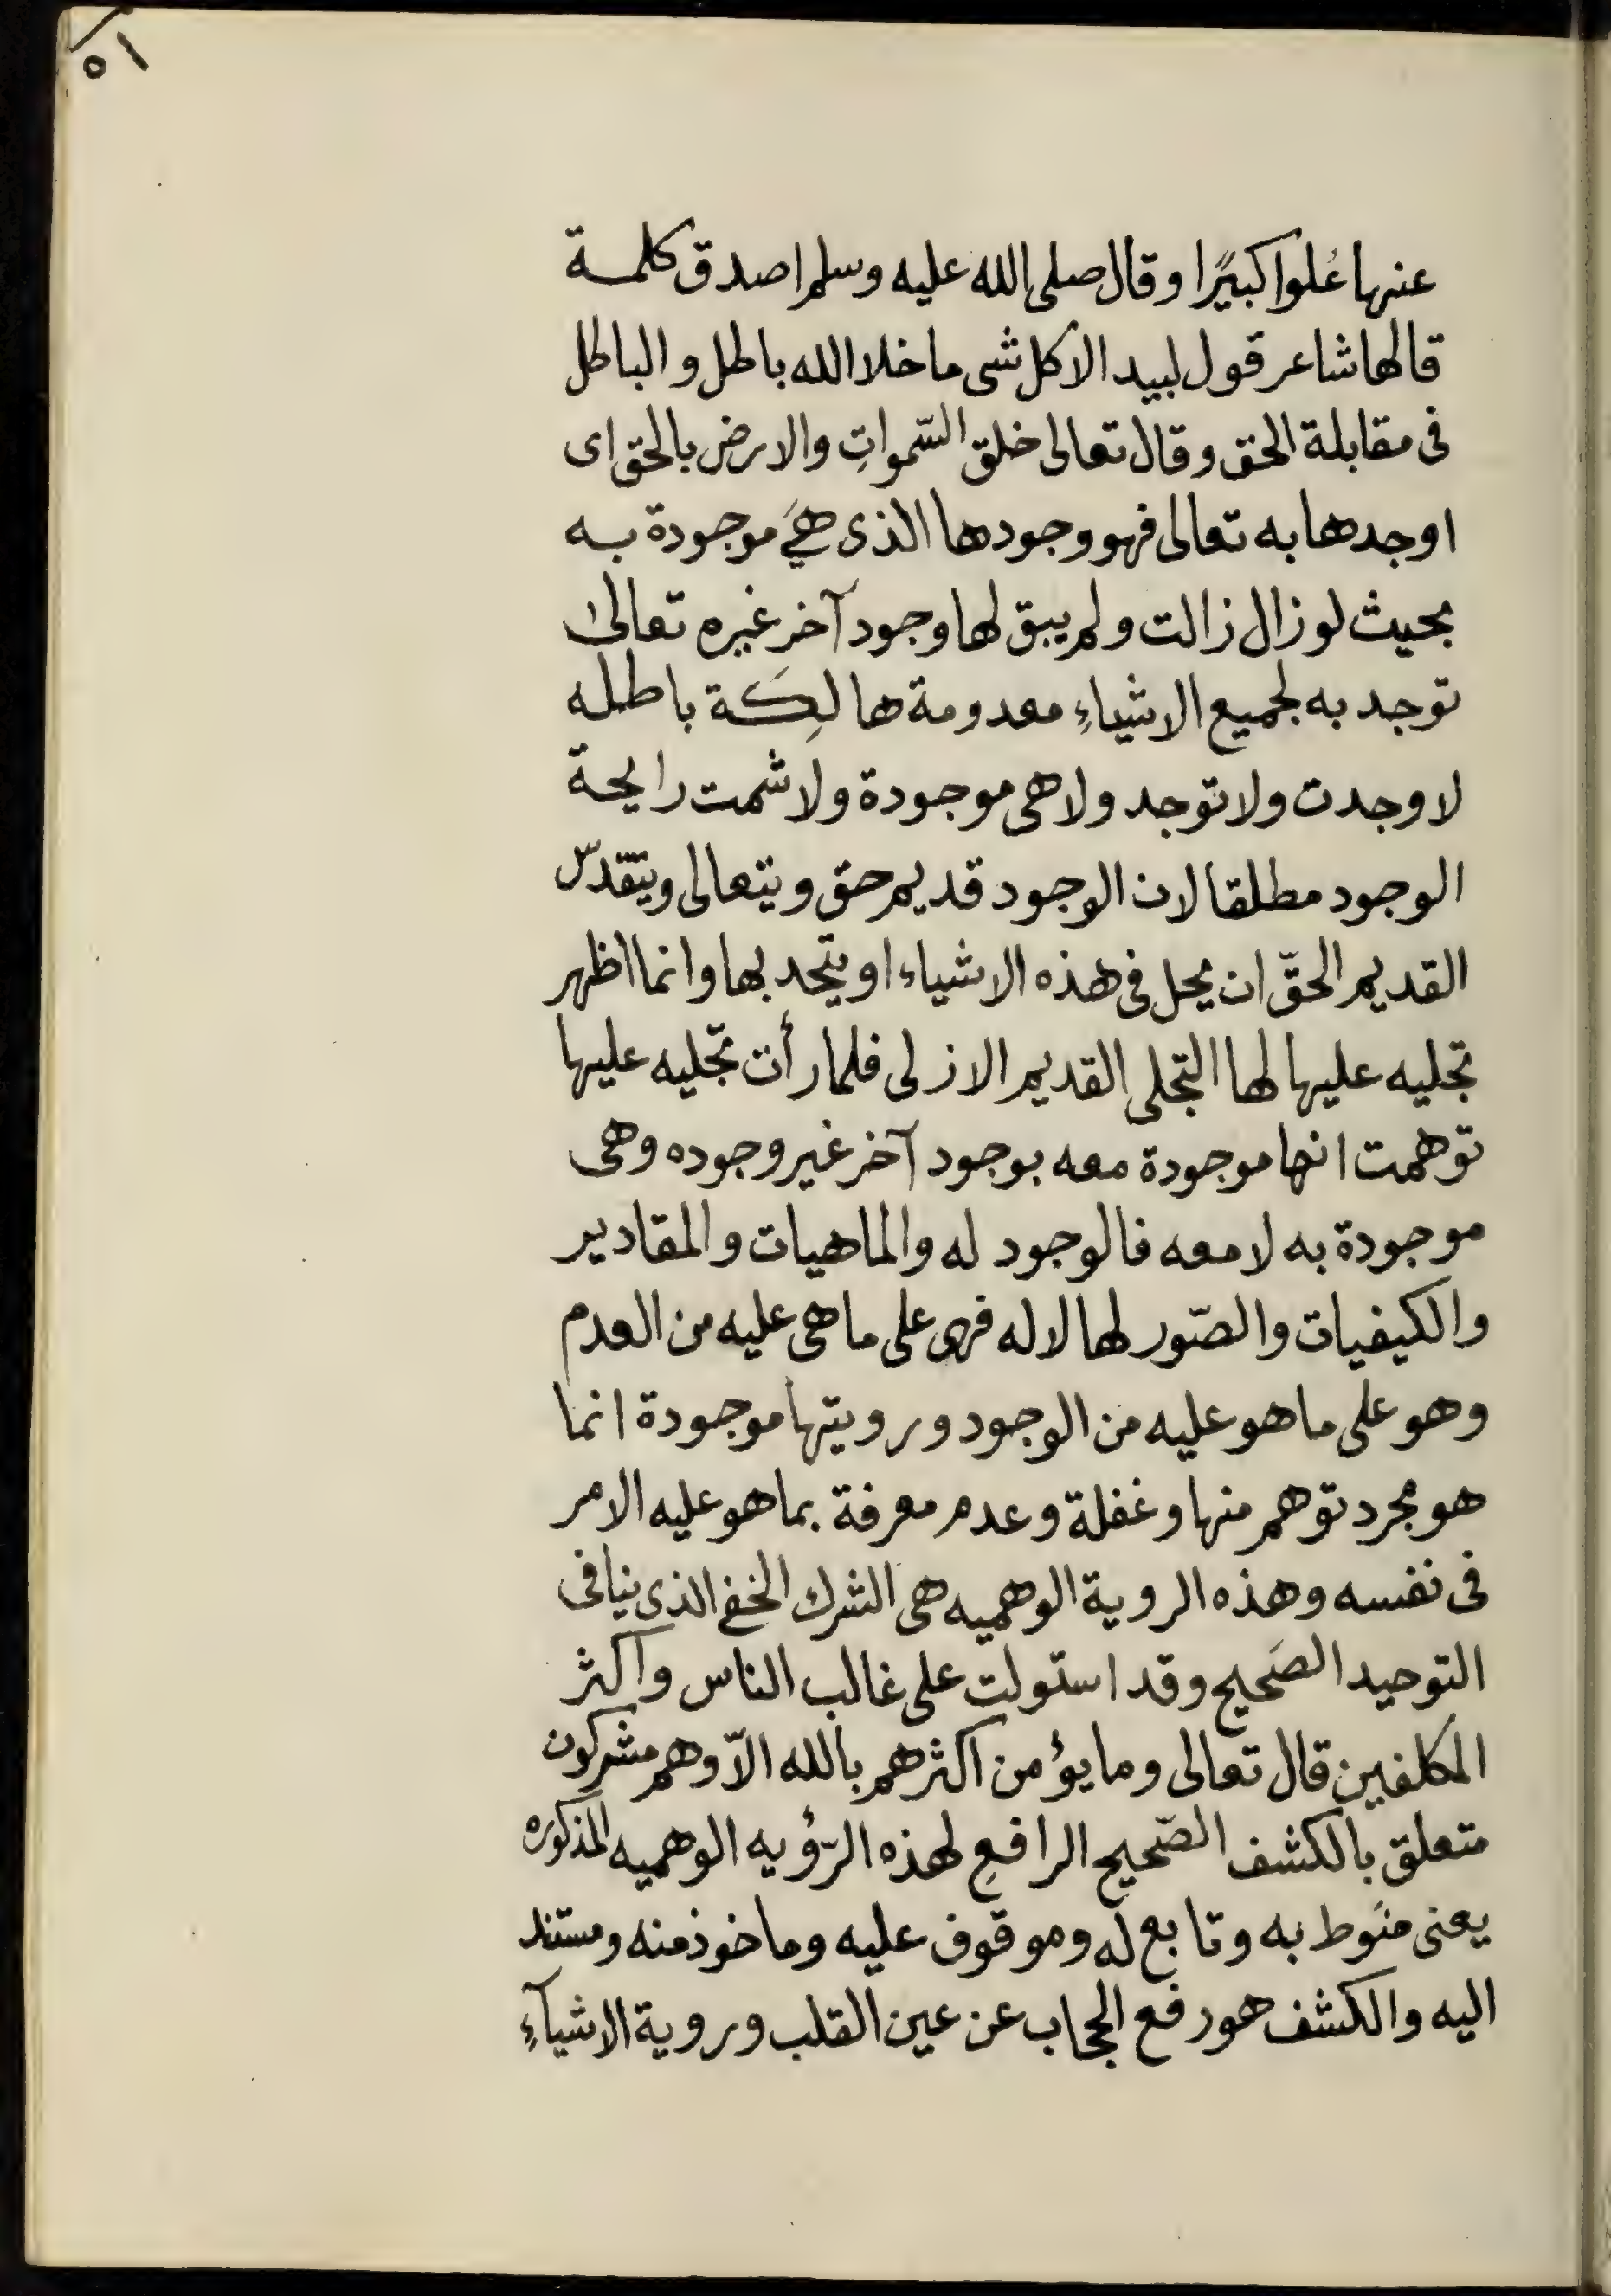 ٥١
عنها عُلوا كبيًرا وقال صلى الله عليه وسلم اصدق كلمة
قالها شاعر قول لبيد الا كل شى ما خلا الله باطل و الباطل
فى مقابلة الحق وقال تعالى خلق السّمواتِ والارض بالحق اى
اوجدها به تعالى فهو وجودها الذى هىَ موجودة به
بحيث لو زال زالت ولم يبق لها وجود آخر غيره تعالىٰ
توجد به لجميع الاشياءِ معدومة هالِكَة باطله
لا وجدت ولا توجد ولا هى موجودة ولا شمت رايحة
الوجود مطلقا لان الوجود قديم حق ويتعالى ويتقدّس
القديم الحقّ ان يحل فى هذه الاشياء او يتّحد بها وانما اظهر
تجليه عليها لها التجلى القديم الازلى فلما رأت تجّليه عليها
توهمت انها موجودة معه بوجود آخر غير وجوده وهى
موجودة به لا معه فالوجود له والماهيات والمقادير
والكيفيات والصّور لها لا له فهى على ما هى عليه من العدم
وهو على ما هو عليه من الوجود ورويتها موجودة انما
هو مجرد توهم منها وغفلة وعدم معرفة بما هو عليه الامر
فى نفسه وهذه الروية الوهميه هى الشرك الخفى الذى ينافى
التوحيد الصَحيح وقد استولت على غالب الناس واكثر
المكلفين قال تعالى وما يؤمن اكثرهم بالله الاّ وهم مشركون
متعلق بالكشف الصّحيح الرافعِ لهذه الرّؤيه الوهميه المذكوره
يعنى منَوط به وتابع له وموقوف عليه وماخوذ منه ومستند
اليه والكشف هو رفع الحجاب عن عين القلب وروية الاشيآءِ